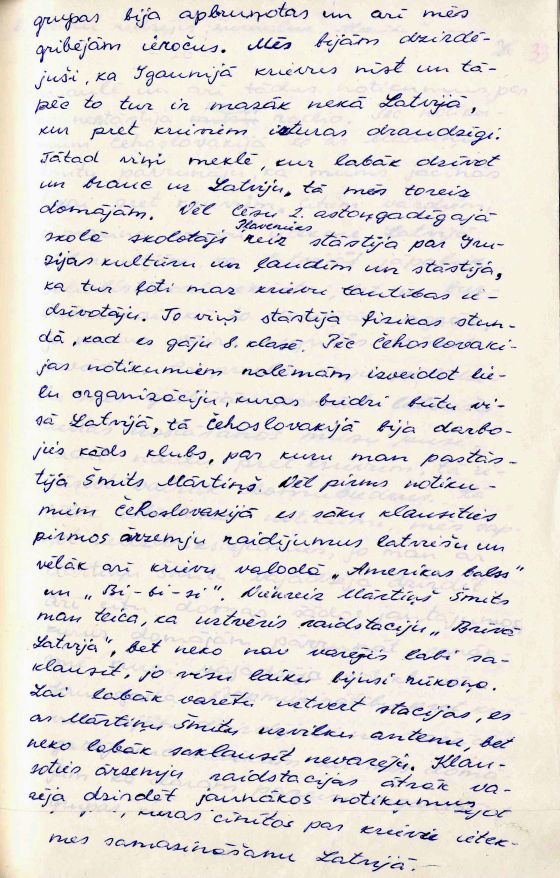 grupas bija apbruņotas un arī mēs
gribējām ieročus. Mēs bijām dzirdē-
juši, ka Igaunijā krievus nīst un tā-
pēc to tur ir mazāk nekā Latvijā,
kur pret krieviem izturas draudzīgi.
Tātad viņi meklē, kur labāk dzīvot
un brauc uz Latviju, tā mēs toreiz
domājām. Vēl Cēsu 2. astoņgadīgajā
skolā skolotājs Klavenieks reiz stāstīja par Gru-
zijas kultūru un ļaudīm un stāstīja,
ka tur ļoti maz krievu tautības ie-
dzīvotāju. To viņš stāstīja fizikas stun-
dā, kad es gāju 8. klasē. Pēc Čehoslovaki-
jas notikumiem nolēmām izveidot lie-
lu organizāciju, kuras biedri būtu vi-
sā Latvijā, tā Čehoslovakijā bija darbo-
jies kāds klubs, par kuru man pastās-
tīja Šmits Mārtiņš. Vēl pirms notiku-
miem Čehoslovakijā es sāku klausīties
pirmos ārzemju raidījumus latviešu un
vēlāk arī krievu valodā „Amerikas balss"
un „Bi-bi-si". Vienreiz Mārtiņš Šmits
man teica, ka uztvēris raidstaciju „Brīvā
Latvija", bet neko nav varējis labi sa-
klausīt, jo visu laiku bijusi rūkoņa.
Lai labāk varētu uztvert stacijas, es
ar Mārtiņu Šmitu uzvilku antenu, bet
neko labāk saklausīt nevarēju. Klau-
soties ārzemju raidstacijas ātrāk va-
rēja dzirdēt jaunākos notikumus
kuras cīnītos par krievu ietek-
mes samazināšanu Latvijā.